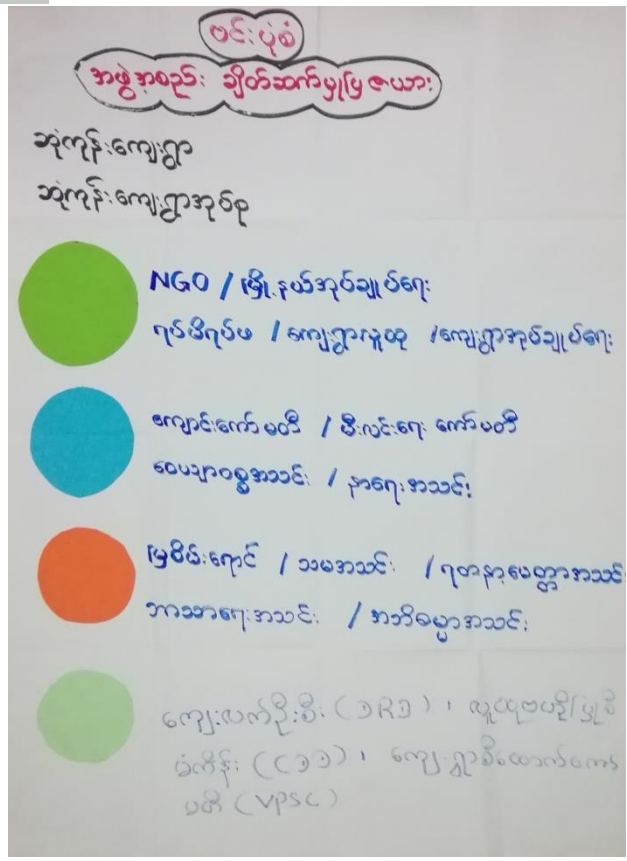 ဗင်းပုံစံ
အဖွဲ့အစည်း ချိတ်ဆက်မှုပြဇယား
ဆုံကုန်းကျေးရွာ
ဆုံကုန်းကျေးရွာအုပ်စု
NGO / မြို့နယ်အုပ်ချုပ်ရေး
ရပ်မိရပ်ဖ / ကျေးရွာလူထု / ကျေးရွာအုပ်ချုပ်ရေး
ကျောင်းကော်မတီ / မီးလင်းရေး ကော်မတီ
ဝေယျာဝစ္စအသင်း / နာရေးအသင်း
မြစိမ်းရောင် / သမအသင်း / ရတနာ့မေတ္တာအသင်း
ဘာသာရေးအသင်း / အဘိဓမ္မာအသင်း
ကျေးလက်ဦးစီး (DRD) ၊ လူထုဗဟိုပြုစီ
မံကိန်း (CDD) ၊ ကျေးရွာစီထောက်ကော်
မတီ (VPSC)